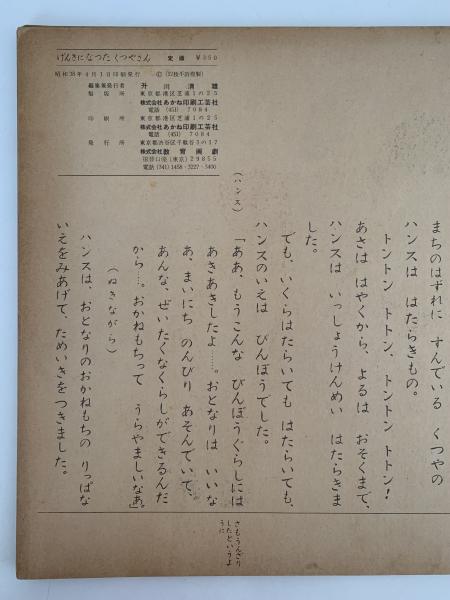 げんきになつた くつやさん 定価 ¥350
昭和38年4月1日印刷発行 Ⓒ (12枚不許複製)
編集兼発行者 升川清雄
製版所 東京都港区芝浦1の25
株式会社あかね印刷工芸社
電話 (451) 7084
印刷所 東京都港区芝浦1の25
株式会社あかね印刷工芸社
電話 (451) 7084
発行所 東京都渋谷区千駄谷3の17
株式会社教育画劇
振替口座(東京)29855
電話 (341) 1458・3227・3400
まちのはずれに すんでいる くつやの
ハンスは はたらきもの。
トントン トトン、トントン トトン!
あさは はやくから、よるは おそくまで、
ハンスは いっしょうけんめい はたらきま
した。
でも、いくらはたらいても はたらいても、
ハンスのいえは びんぼうでした。
(ハンス)
「ああ、もうこんな びんぼうぐらしには
あきあきしたよ……。おとなりは いいな
あ、まいにち のんびり あそんでいて、
あんな、ぜいたくなくらしができるんだ
から…。おかねもちって うらやましいなあ」
(ぬきながら)
ハンスは、おとなりのおかねもちの りっぱな
いえをみあげて、ためいきをつきました。
さもうんざり
したというよ
うに